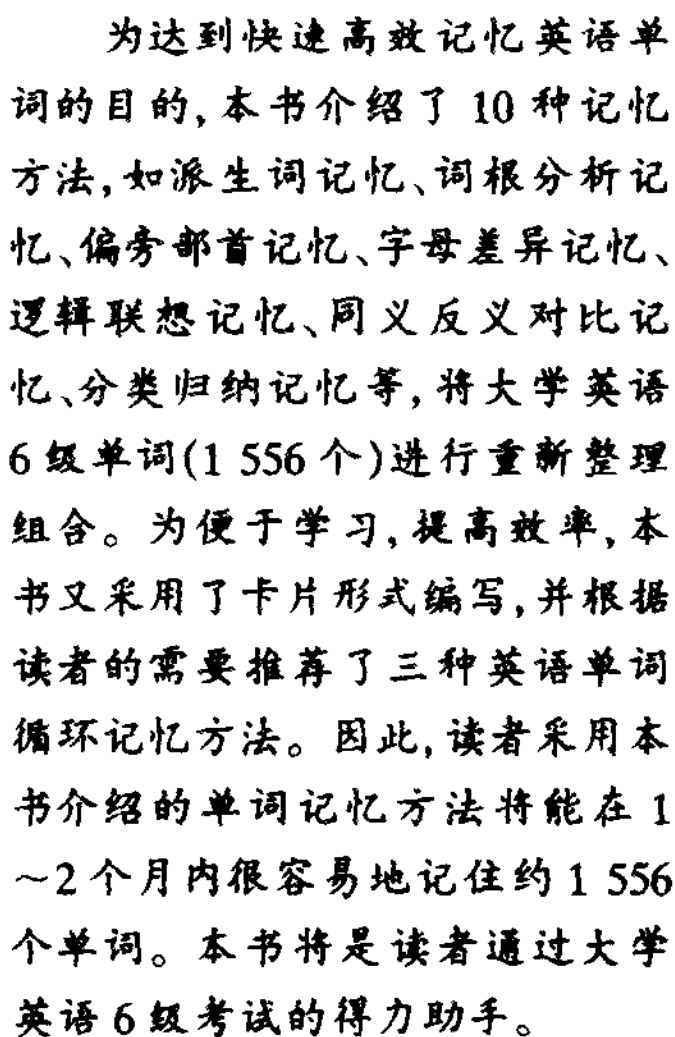 为达到快速高效记忆英语单
词的目的,本书介绍了 10 种记忆
方法,如派生词记忆、词根分析记
忆、偏旁部首记忆、字母差异记忆、
逻辑联想记忆、同义反义对比记
忆、分类归纳记忆等,将大学英语
6 级单词(1 556 个)进行重新整理
组合。为便于学习,提高效率,本
书又采用了卡片形式编写,并根据
读者的需要推荐了三种英语单词
循环记忆方法。因此,读者采用本
书介绍的单词记忆方法将能在 1
~2 个月内很容易地记住约 1 556
个单词。本书将是读者通过大学
英语 6 级考试的得力助手。